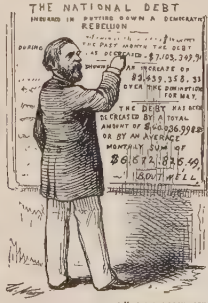 THE NATIONAL DEBT
INCURED IN PUTTING DOWN A DEMOCRATIC
REBELLION
DURING THE PAST MONTH THE DEBT
AS DECREASED $7,103,349.91
SHOWING AN INCREASE OF
$3,439,358.33
OVER THE DIMINUTION
FOR MAY.
THE DEBT HAS BEEN
DECREASED BY A TOTAL
AMOUNT OF
OR BY AN AVERAGE
MONTHLY SUM OF
$6,672,826.49
BOUTWELL